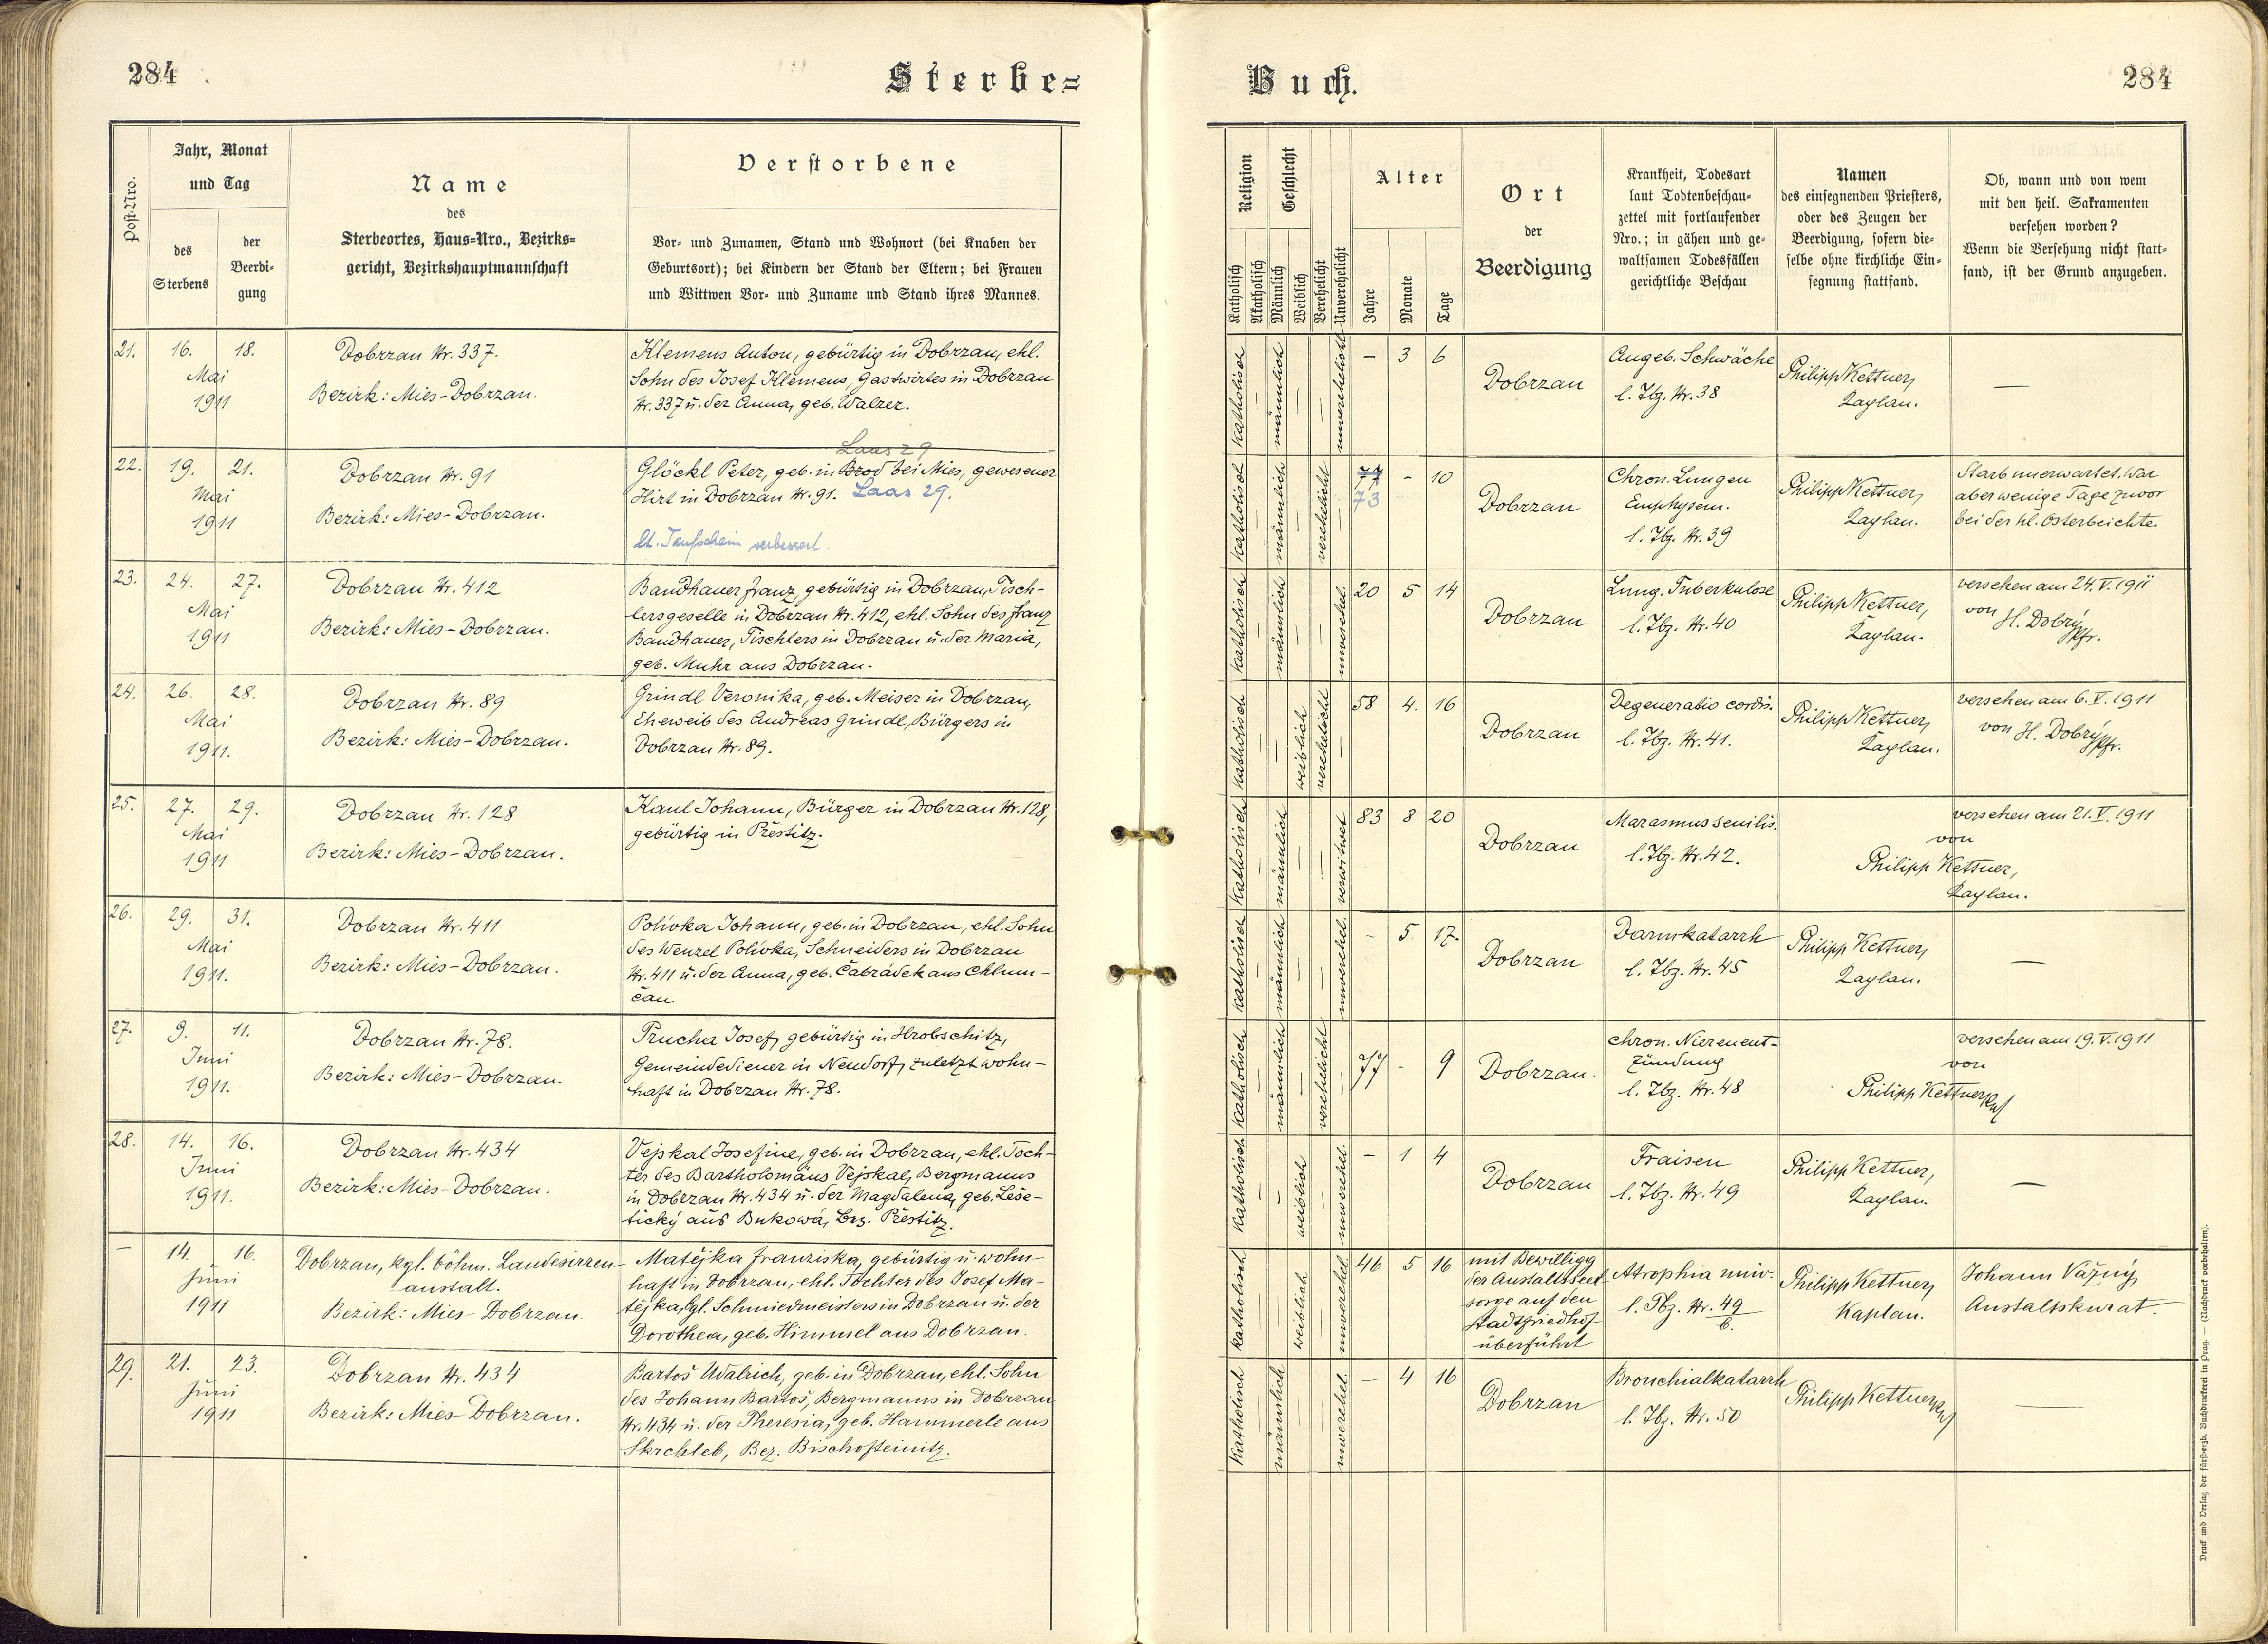 284
Sterbe=
Buch.
284
Post-Nro.
Jahr, Monat
und Tag
des
Sterbens
der
Beerdi-
gung
Name
des
Sterbeortes, Haus=Nro., Bezirks=
gericht, Bezirkshauptmannschaft
Verstorbene
Vor- und Zunamen, Stand und Wohnort (bei Knaben der
Geburtsort); bei Kindern der Stand der Eltern; bei Frauen
und Wittwen Vor- und Zuname und Stand ihres Mannes.
Religion
Katholisch
Akatholisch
Geschlecht
Männlich
Weiblich
Verehelicht
Unverehelicht
Alter
Jahre
Monate
Tage
Ort
der
Beerdigung
Krankheit, Todesart
laut Todtenbeschau-
zettel mit fortlaufender
Nro.; in gähen und ge-
waltsamen Todesfällen
gerichtliche Beschau
Namen
des einsegnenden Priesters,
oder des Zeugen der
Beerdigung, sofern die-
selbe ohne kirchliche Ein-
segnung stattfand.
Ob, wann und von wem
mit den heil. Sakramenten
versehen worden?
Wenn die Versehung nicht statt-
fand, ist der Grund anzugeben.
21. 16. 18.
Mai
1911
Dobrzan Nr. 337.
Bezirk: Mies-Dobrzan.
Klemens Anton, gebürtig in Dobrzan, ehl.
Sohn des Josef Klemens, Gastwirtes in Dobrzan
Nr. 337 u. der Anna, geb. Walzer.
katholisch — männlich — — unverehelicht
– 3 6
Dobrzan
Angeb. Schwäche
l. Tbz. Nr. 38
Philipp Kettner,
Kaplan.
—
22. 19. 21.
Mai
1911
Dobrzan Nr. 91
Bezirk: Mies-Dobrzan.
Laas 29
Glöckl Peter, geb. in Brod bei Mies, gewesener
Hirt in Dobrzan Nr. 91. Laas 29.
lt. Taufschein verbessert.
katholisch — männlich — verehelicht —
77 - 10
73
Dobrzan
Chron. Lungen
Emphysem.
l. Tbz. Nr. 39
Philipp Kettner,
Kaplan.
Starb unerwartet. War
aber wenige Tage zuvor
bei der hl. Osterbeichte.
23. 24. 27.
Mai
1911
Dobrzan Nr. 412
Bezirk: Mies-Dobrzan.
Bandhauer Franz, gebürtig in Dobrzan, Tisch-
lersgeselle in Dobrzan Nr. 412, ehl. Sohn des Franz
Bandhauer, Tischlers in Dobrzan u. der Maria,
geb. Muhr aus Dobrzan.
katholisch — männlich — — unverehel.
20 5 14
Dobrzan
Lung. Tuberkulose
l. Tbz. Nr. 40
Philipp Kettner,
Kaplan.
versehen am 24. V. 1911
von
H. Dobrý
Pfr.
24. 26. 28.
Mai
1911.
Dobrzan Nr. 89
Bezirk: Mies-Dobrzan.
Grindl Veronika, geb. Meiser in Dobrzan,
Eheweib des Andreas Grindl, Bürgers in
Dobrzan Nr. 89.
katholisch — — weiblich verehelicht —
58 4. 16
Dobrzan
Degeneratio cordis.
l. Tbz. Nr. 41.
Philipp Kettner,
Kaplan.
versehen am 6. V. 1911
von H. Dobrý Pfr.
25. 27. 29.
Mai
1911
Dobrzan Nr. 128
Bezirk: Mies-Dobrzan.
Kaul Johann, Bürger in Dobrzan Nr. 128,
gebürtig in Přestitz.
katholisch — männlich — — verwitwet
83 8 20
Dobrzan
Marasmus senilis.
l. Tbz. Nr. 42.
versehen am 21. V. 1911
von
Philipp Kettner,
Kaplan.
26. 29. 31.
Mai
1911.
Dobrzan Nr. 411
Bezirk: Mies-Dobrzan.
Polívka Johann, geb. in Dobrzan, ehl. Sohn
des Wenzel Polívka, Schneiders in Dobrzan
Nr. 411 u. der Anna, geb. Čabrádek aus Chlum-
čan
katholisch — männlich — — unverehel.
– 5 17.
Dobrzan
Darmkatarrh
l. Tbz. Nr. 45
Philipp Kettner,
Kaplan.
—
27. 9. 11.
Juni
1911.
Dobrzan Nr. 78.
Bezirk: Mies-Dobrzan.
Prucha Josef, gebürtig in Hrobschitz,
Gemeindediener in Neudorf, zuletzt wohn-
haft in Dobrzan Nr. 78.
katholisch — männlich — verehelicht —
77 - 9
Dobrzan.
chron. Nierenent-
zündung
l. Tbz. Nr. 48
versehen am 19. V. 1911
von
Philipp Kettner
28. 14. 16.
Juni
1911.
Dobrzan Nr. 434
Bezirk: Mies-Dobrzan.
Vejskal Josefine, geb. in Dobrzan, ehl. Toch-
ter des Bartholomäus Vejskal, Bergmanns
in Dobrzan Nr. 434 u. der Magdalena, geb. Leše-
tický aus Bukowá, Bez. Přestitz.
katholisch — — weiblich — unverehel.
– 1 4
Dobrzan
Fraisen
l. Tbz. Nr. 49
Philipp Kettner,
Kaplan.
—
— 14. 16.
Juni
1911
Dobrzan, kgl. böhm. Landesirren-
anstalt.
Bezirk: Mies Dobrzan.
Matějka Franziska, gebürtig u. wohn-
haft in Dobrzan, ehl. Tochter des Josef Ma-
tějka, bgl. Schmiedmeisters in Dobrzan u. der
Dorothea, geb. Himmel aus Dobrzan.
katholisch — — weiblich — unverehel.
46 5 16
mit Bewilligg
der Anstaltsseel
sorge auf den
Stadtfriedhof
überführt
Atrophia univ.
l. Tbz. Nr. 49/6.
Philipp Kettner,
Kaplan.
Johann Vážný,
Anstaltskurat.
29. 21. 23.
Juni
1911
Dobrzan Nr. 434
Bezirk: Mies-Dobrzan.
Bartoš Udalrich, geb. in Dobrzan, ehl. Sohn
des Johann Bartoš, Bergmanns in Dobrzan
Nr. 434 u. der Theresia, geb. Hammerle aus
Skrchleb, Bez. Bischofteinitz.
katholisch männlich unverehel.
– 4 16
Dobrzan
Bronchialkatarrh
l. Tbz. Nr. 50
Philipp Kettner
—
Druck und Verlag der fürsterzb. Buchdruckerei in Prag. — (Nachdruck vorbehalten).